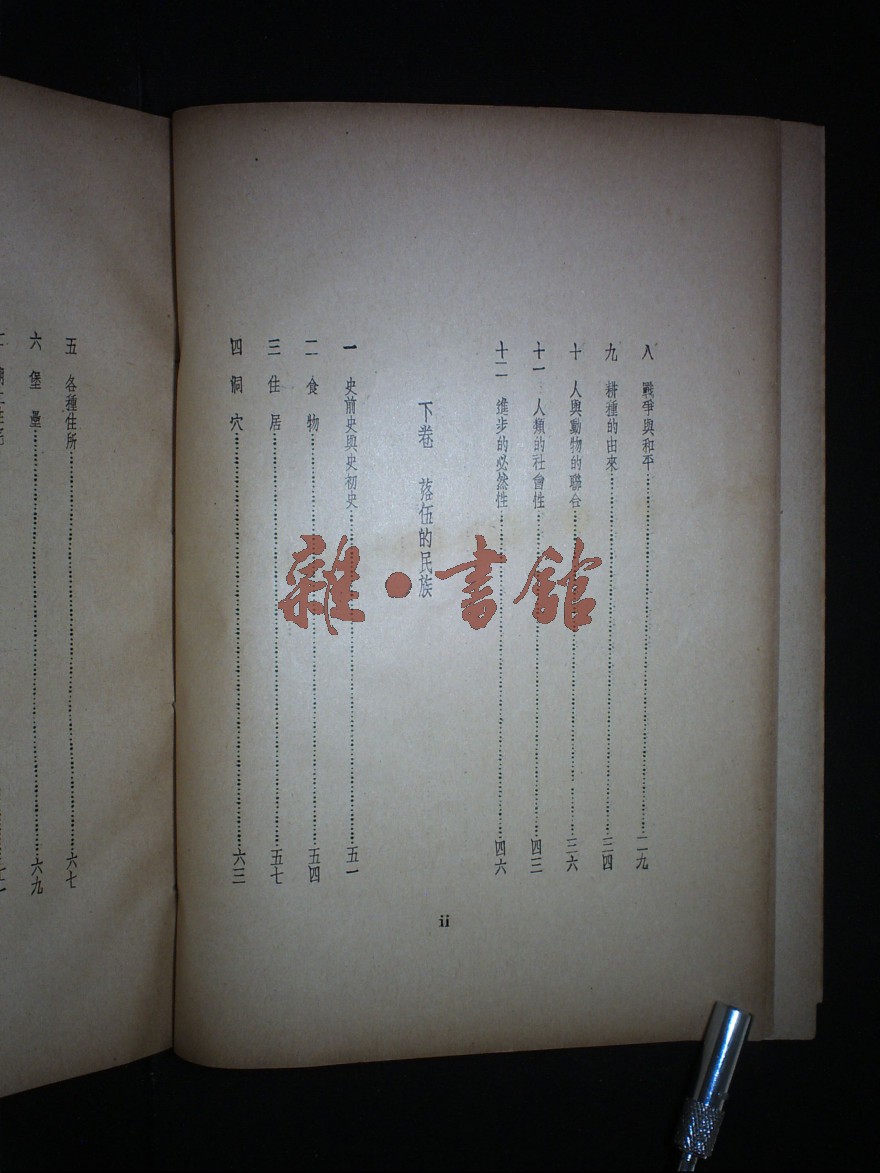 八　戰爭與和平……二九
九　耕種的由來……三四
十　人與動物的聯合……三六
十一　人類的社會性……四三
十二　進步的必然性……四六
下卷　落伍的民族
一　史前史與史初史……五一
二　食物……五四
三　住居……五七
四　洞穴……六三
ii
五　各種住所……六七
六　堡壘……六九
七一
雜·書館